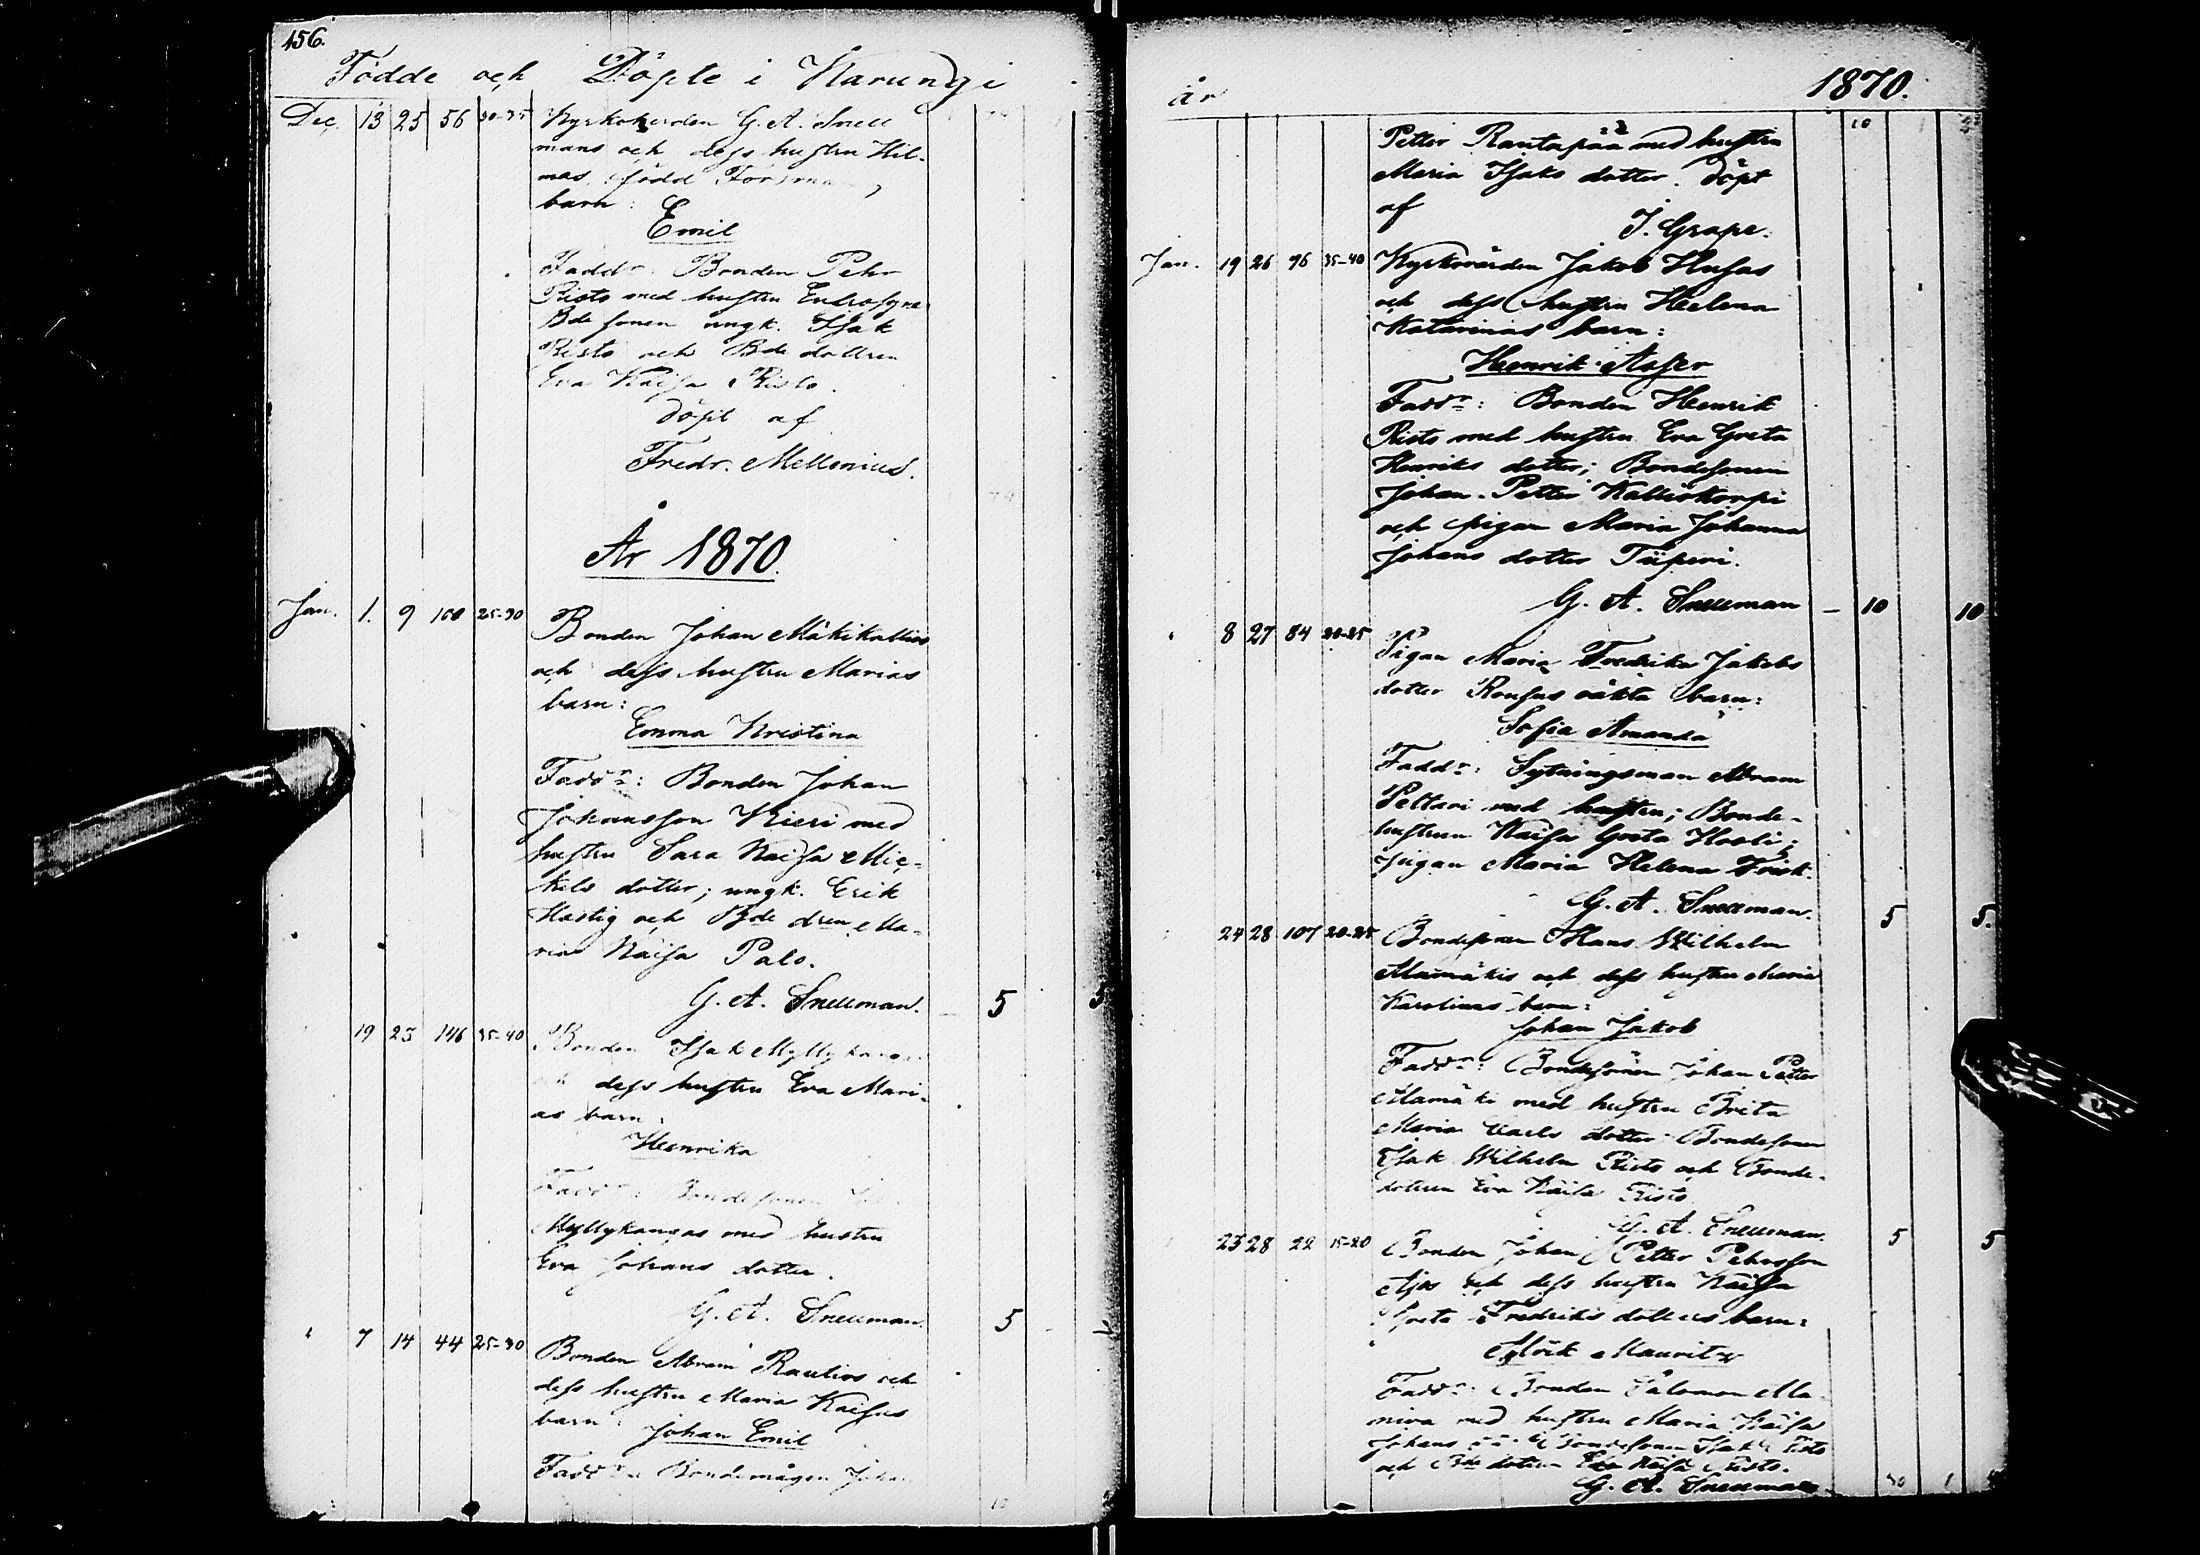 456.
Födde och Döpte i Karungi
Dec. 13 25 56 30-35 Kyrkoherden G. A. Snell
mans och dess hustru Hil-
mas, född Forsman,
barn:
Emil
Fadd:r Bonden Pehr
Risto med hustru
Bde sonen ungk. Isak
Risto och Bde dottren
Eva Kaisa Risto.
döpt af
Fredr. Mellenius.
År 1870.
Jan. 1. 9 100 25-30
Bonden Johan Mäkikallios
och dess hustru Marias
barn:
Emma Kristina
Fadd:r: Bonden Johan
Johansson Kieri med
hustru Sara Kaisa Mic-
kels dotter; ungk. Erik
Hastig och Bde dren Ma-
ria Kaisa Palo.
G. A. Snellman. 5 5
19 23 146 35-40 Bonden Isak Myllykangas
och dess hustru Eva Mari-
as barn:
Henrika
Fadd:r: Bondesonen
Myllykangas med hustru
Eva Johans dotter.
G. A. Snellman. 5
7 14 44 25-30 Bonden Abram Rautios och
dess hustru Maria Kaisas
barn: Johan Emil
Fadd:r: Bondemågen Johan
år 1870.
Petter Rantapää med hustru
Maria Isaks dotter. döpt
af
J. Grape.
Jan. 19 26 96 35-40 Kyrkovärden Jakob Husas
och dess hustru Helena
Katarinas barn:
Henrik
Fadd:r: Bonden Henrik
Risto med hustru Eva Greta
Henriks dotter; Bondesonen
Johan Petter Kalliokorpi
och pigan Maria Johanna
Johans dotter
G. A. Snellman – 10 10
8 27 84 20-25
Pigan Maria Fredrika Jakobs
dotter oäkta barn:
Sofia Amanda
Fadd:r: Sytningsman Abram
Pelttari med hustru; Bonde-
hustrun Kaisa Greta
pigan Maria Helena Frisk.
G. A. Snellman. 5 5.
24 28 107 20-25 Bondesonen Hans Wilhelm
Alamäkis och dess hustru Maria
Karolinas barn:
Johan Jakob
Fadd:r: Bondesonen Johan Petter
Alamäki med hustru Brita
Maria Carls dotter Bondesonen
Isak Wilhelm Risto och Bonde-
dottren Eva Kaisa Risto
G. A. Snellman. 5 5
25 28 22 15-20 Bonden Johan Petter Pehrsson
och dess hustru Kaisa
Greta Fredriks dotters barn:
Mauritz
Fadd:r: Bonden Salomon
med hustru Maria Kaisa
Johans Bondesonen Isak Risto
och Bde dottren Eva Kaisa Risto.
G. A. Snellman